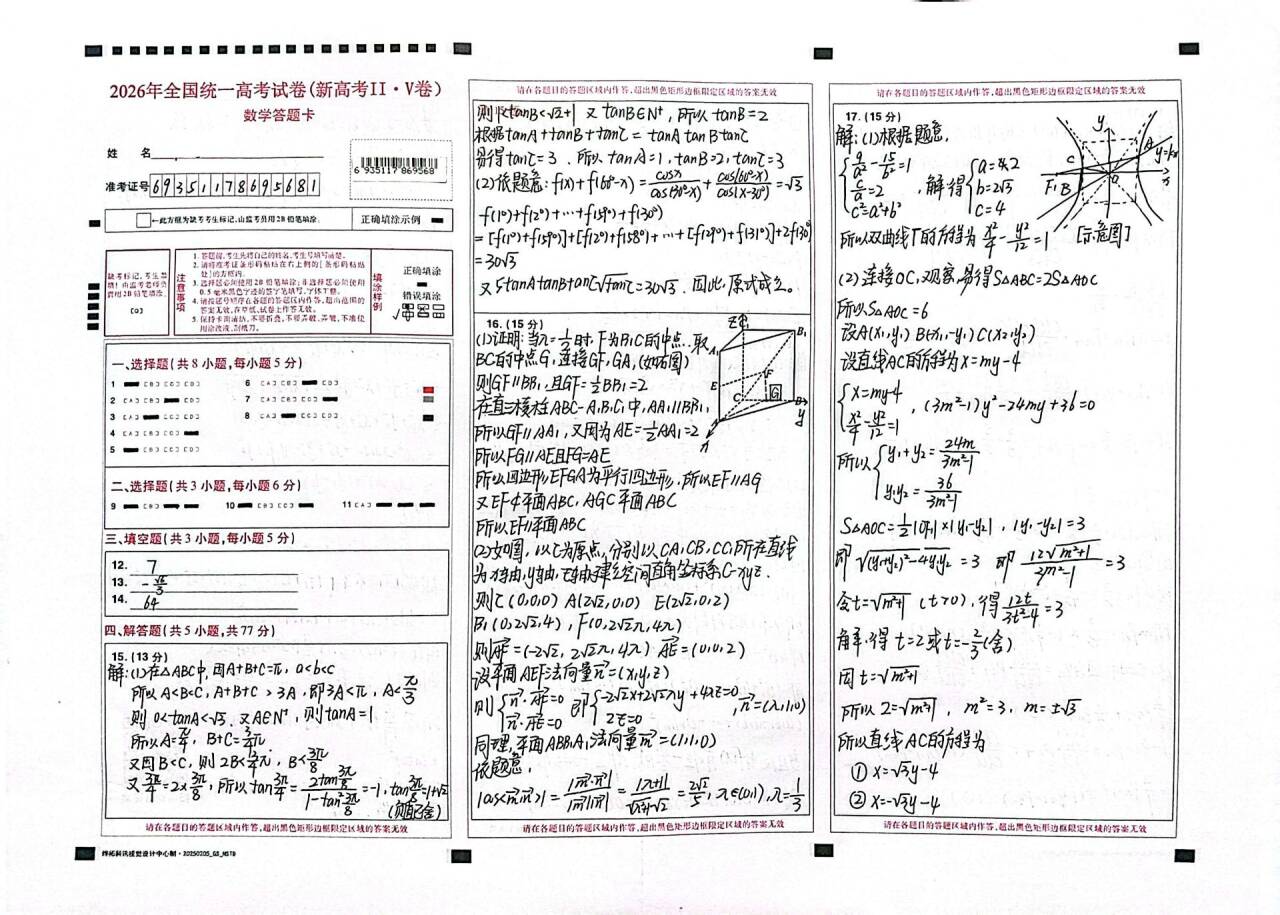 2026年全国统一高考试卷(新高考II·V卷)
数学答题卡
姓 名
准考证号 6935117869568 1
6 935117 869568
←此方框为缺考考生标记,由监考员用2B铅笔填涂。
正确填涂示例
缺考标记,考生禁填!由监考老师负责用2B铅笔填涂。
注意事项
1. 答题前,考生先将自己的姓名、考生号填写清楚。
填涂样例
正确填涂
错误填涂
一、选择题(共8小题,每小题5分)
1 [B] [C] [D] 6 [A] [B] [D]
2 [A] [B] [D] 7 [A] [B] [C]
3 [A] [C] [D] 8 [A] [C] [D]
4 [A] [B] [C]
5 [B] [C] [D]
二、选择题(共3小题,每小题6分)
9 [B] [D] 10 [B] [C] 11 [A]
三、填空题(共3小题,每小题5分)
12. 7
13.
14. 64
四、解答题(共5小题,共77分)
15. (13分)
解:(1)在△ABC中,因A+B+C=π, a<b<c
所以A<B<C, A+B+C>3A, 即3A<π, A<π/3
则 0<tanA<√3, 又A∈N⁺, 则tanA=1
所以A=π/4, B+C=3/4π
又因B<C, 则2B<3/4π, B<3π/8
又3π/4=2×3π/8, 所以tan3π/4=2tan3π/8/1-tan²3π/8=-1, tan3π/8=1+√2
(负值舍)
请在各题目的答题区域内作答,超出黑色矩形边框限定区域的答案无效
请在各题目的答题区域内作答,超出黑色矩形边框限定区域的答案无效
则1<tanB<√2+1 又tanB∈N⁺, 所以tanB=2
根据tanA+tanB+tanC=tanAtanBtanC
易得tanC=3. 所以tanA=1, tanB=2, tanC=3
(2)依题意: f(x)+f(60°-x)=cosx/cos(30°-x)+cos(60°-x)/cos(x-30°)=√3
f(1°)+f(2°)+…+f(59°)+f(30°)
=[f(1°)+f(59°)]+[f(2°)+f(58°)+…+[f(29°)+f(31°)]+2f(30°)
=30√3
又5tanAtanBtanC√tanC=30√3. 因此,原式成立。
16. (15分)
(1)证明:当λ=1/2时,F为B₁C的中点.取
BC的中点G,连接GF,GA,(如右图)
则GF//BB₁,且GF=1/2BB₁=2
在直三棱柱ABC-A₁B₁C₁中,AA₁//BB₁,
所以GF//AA₁,又因为AE=1/2AA₁=2
所以FG//AE且FG=AE
所以四边形EFGA为平行四边形,所以EF//AG
又EF⊄平面ABC, AG⊂平面ABC
所以EF//平面ABC
(2)如图,以C为原点,分别以CA,CB,CC₁所在直线
为x轴,y轴,z轴建立空间直角坐标系C-xyz.
则C(0,0,0) A(2√2,0,0) E(2√2,0,2)
B₁(0,2√2,4), F(0,2√2λ,4λ)
则AF=(-2√2, 2√2λ, 4λ) AE=(0,0,2)
设平面AEF法向量n=(x,y,z)
则{n·AF=0 n·AE=0 即{-2√2x+2√2λy+4λz=0 2z=0, n=(λ,1,0)
同理,平面ABB₁A₁法向量m=(1,1,0)
依题意,
|cos<m,n>|=|m·n|/|m||n|=|λ+1|/√λ²+1·√2=2√5/5, λ∈(0,1), λ=1/3
Z A₁ B₁ E F C G B y A x
请在各题目的答题区域内作答,超出黑色矩形边框限定区域的答案无效
请在各题目的答题区域内作答,超出黑色矩形边框限定区域的答案无效
17. (15分)
解:(1)根据题意,
{9/a²-15/b²=1 c/a=2 c²=a²+b², 解得{a=2 b=2√3 c=4
所以双曲线Γ的方程为x²/4-y²/12=1 [示意图]
(2)连接OC,观察,易得S△ABC=2S△AOC
所以S△AOC=6
设A(x₁,y₁) B(-x₁,-y₁) C(x₂,y₂)
设直线AC的方程为x=my-4
{x=my-4 x²/4-y²/12=1, (3m²-1)y²-24my+36=0
所以{y₁+y₂=24m/3m²-1 y₁y₂=36/3m²-1
S△AOC=1/2|OF₁|×|y₁-y₂|, |y₁-y₂|=3
即√(y₁+y₂)²-4y₁y₂=3 即12√m²+1/3m²-1=3
令t=√m²+1 (t>0), 得12t/3t²-4=3
解得t=2或t=-2/3(舍)
因t=√m²+1
所以2=√m²+1, m²=3, m=±√3
所以直线AC的方程为
① x=√3y-4
② x=-√3y-4
请在各题目的答题区域内作答,超出黑色矩形边框限定区域的答案无效